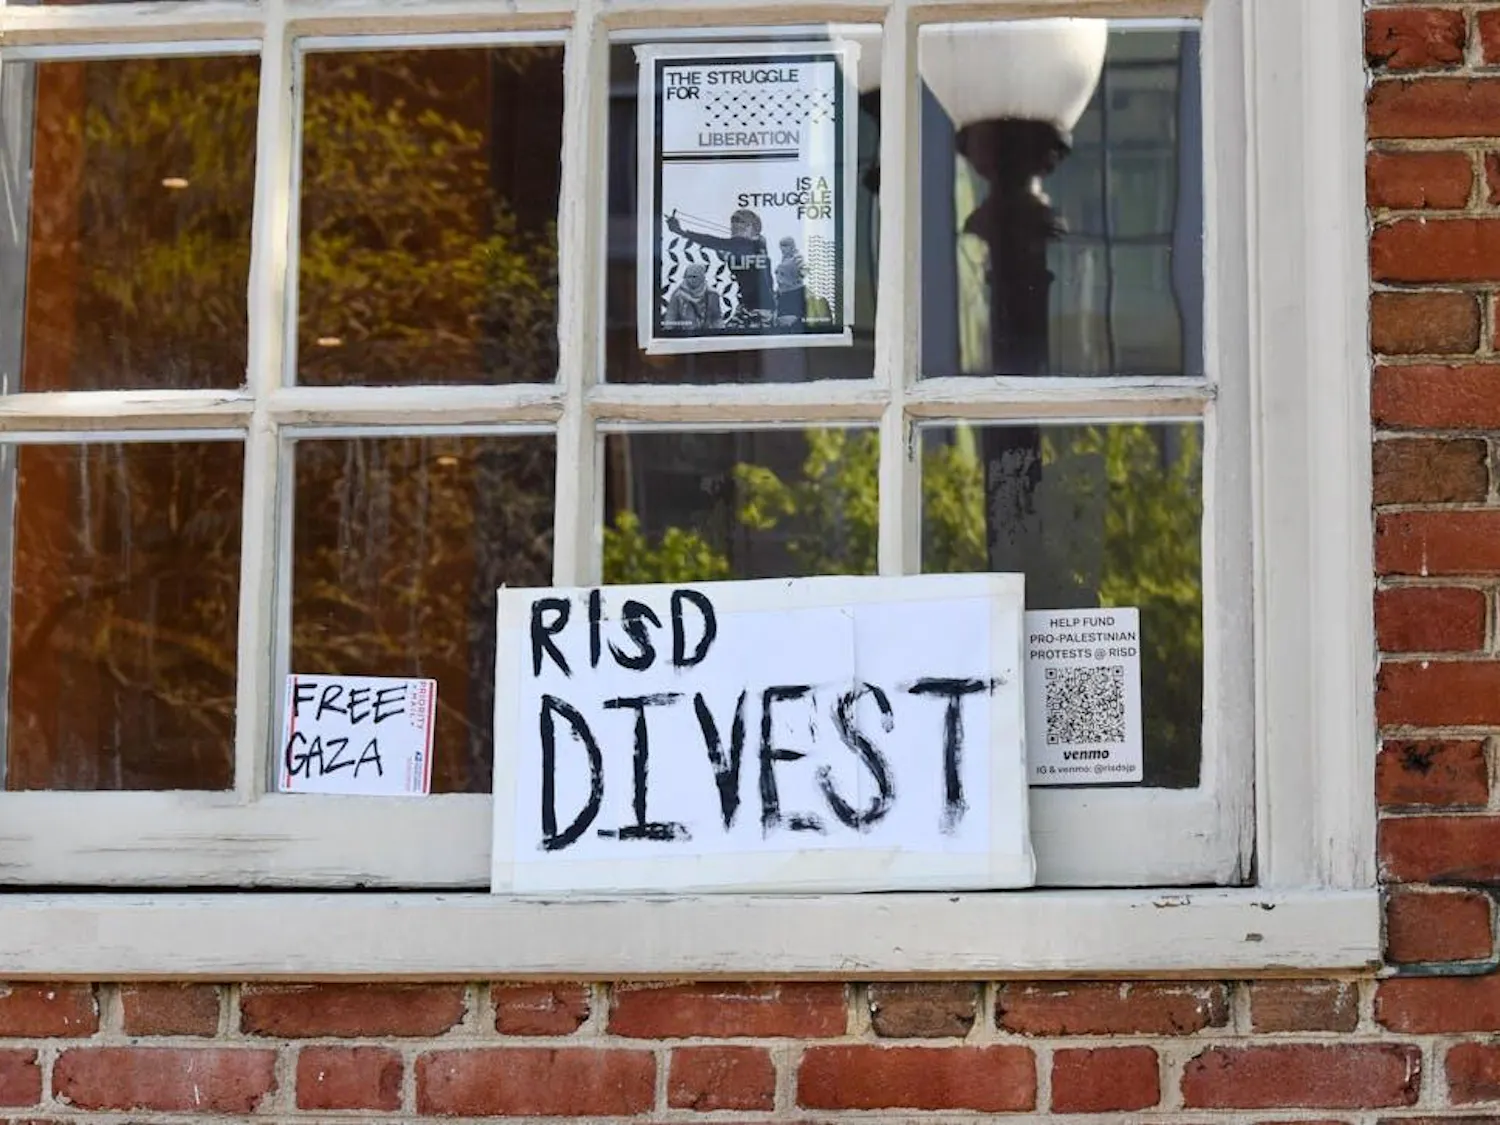 THE STRUGGLE
FOR
LIBERATION
IS A
STRUGGLE
FOR
LIFE
FREE
GAZA
PRIORITY
MAIL
RISD
DIVEST
HELP FUND
PRO-PALESTINIAN
PROTESTS @ RISD
venmo
IG & venmo: @risdsjp